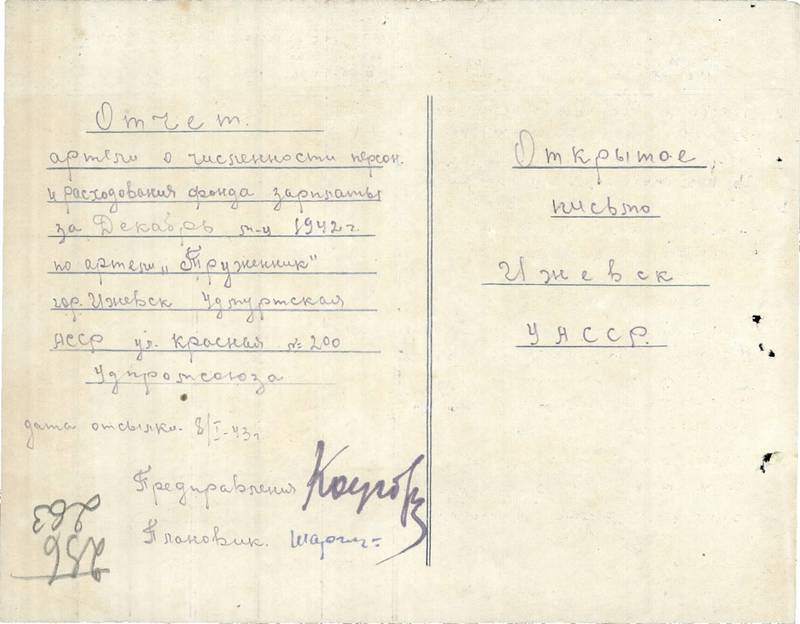 Отчет.
артели о численности персон.
и расходования фонда зарплаты
за Декабрь м-ц 1942 г.
по артели „Труженник"
гор. Ижевск Удмуртская
АССР ул. Красная № 200
Удпромсоюза
дата отсылки. 8/I-43 г
Предправления
Плановик.
263
256
Открытое
письмо
Ижевск
УАССР.